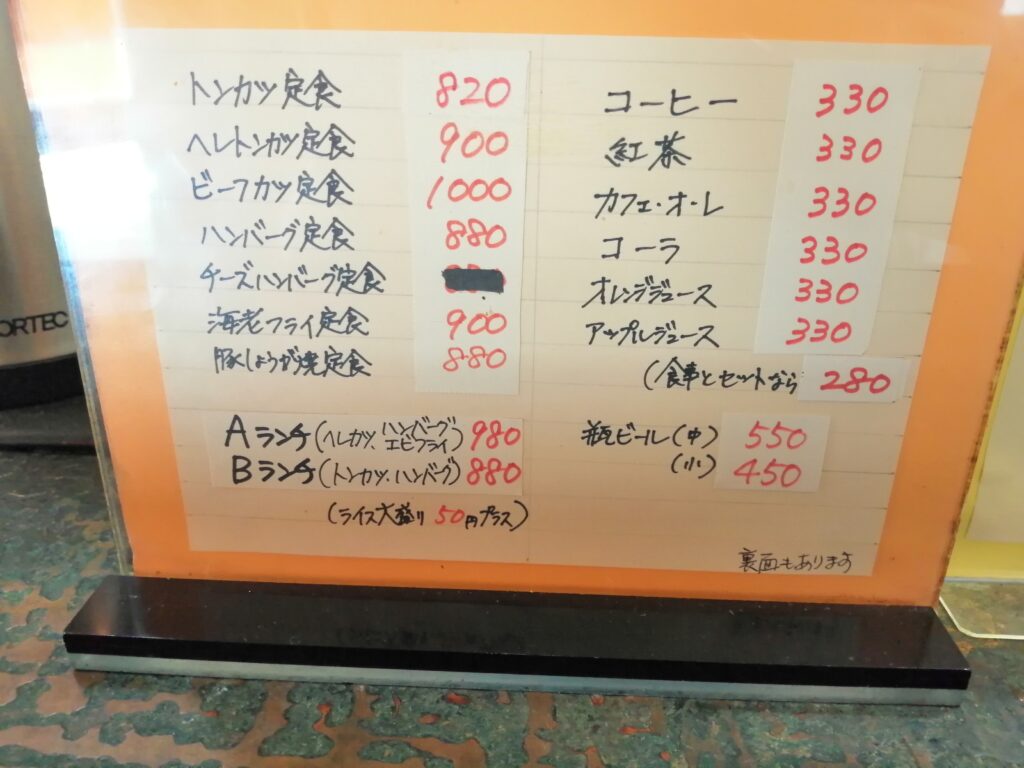 トンカツ定食 820
ヘレトンカツ定食 900
ビーフカツ定食 1000
ハンバーグ定食 880
チーズハンバーグ定食
海老フライ定食 900
豚しょうが焼定食 880
Aランチ(ヘレカツ、ハンバーグ、エビフライ) 980
Bランチ(トンカツ、ハンバーグ) 880
(ライス大盛り 50円プラス)
コーヒー 330
紅茶 330
カフェ・オ・レ 330
コーラ 330
オレンジジュース 330
アップルジュース 330
(食事とセットなら 280
瓶ビール(中) 550
(小) 450
裏面もあります
ORTEC